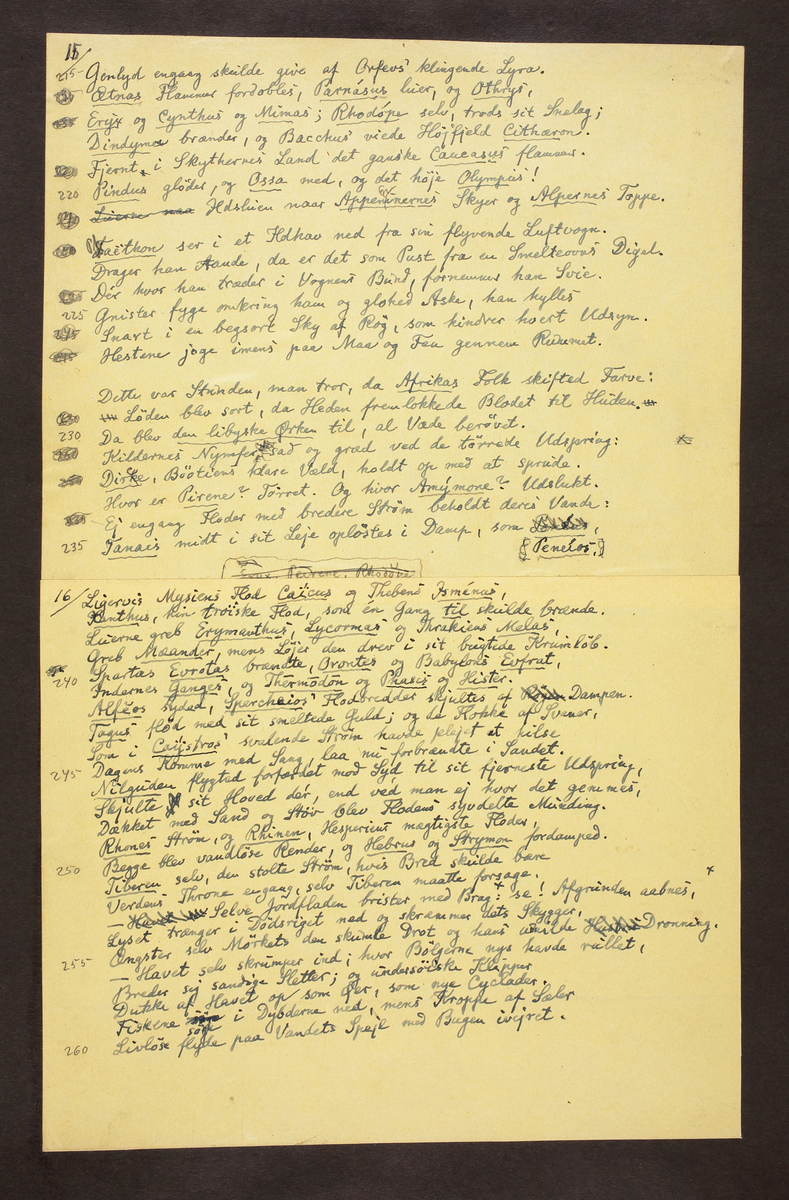 15/
215 Genlyd engang skulde give af Orfevs' klingende Lyra.
Ætnas Flammer fordobles, Parnásus luer, og Othrys,
Eryx og Cynthus og Mimas; Rhodópe selv, trods sit Snelag;
Dindyma brænder, og Bacchus' viede Højfjeld Cithæron.
Fjernt i Skythernes Land det ganske Caucasus flammer.
220 Pindus glöder, og Ossa med, og det höje Olympus!
Ildsluen naar Appeninernes Skyer og Alpernes Toppe.
Faëthon ser i et Ildhav ned fra sin flyvende Luftvogn.
Drager han Aande, da er det som Pust fra en Smelteovns Digel.
Dér hvor han træder i Vognens Bund, fornemmer han Svie.
225 Gnister fyge omkring ham og glohed Aske, han hylles
Snart i en begsort Sky af Røg, som hindrer hvert Udsyn.
Hestene joge imens paa Maa og Faa gennem Rummet.
Dette var Stunden, man tror, da Afrikas Folk skifted Farve:
Löden blev sort, da Heden fremlokkede Blodet til Huden.
230 Da blev den libyske Ørken til, al Væde berövet.
Kildernes Nymfer sad og græd ved de törrede Udspring:
Dirke, Böotiens klare Væld, holdt op med at sprude.
Hvor er Pirene? Törret. Og hvor Amýmone? Udslukt.
Ej engang Floder med bredere Ström beholdt deres Vande:
235 Tanais midt i sit Leje oplöstes i Damp, som
Penëios,
16/ Ligervis Mysiens Flod Caïcus og Thebens Isménus,
Xanthus, hin tröiske Flod, som én Gang til skulde brænde.
Luerne greb Erymanthus, Lycormas og Thrakiens Melas,
Greb Mæander, mens Löjer den drev i sit bugtede Krumlöb.
240 Spartas Evrotas brændte, Orontes og Babylons Evfrat,
Indernes Ganges, og Thermödon og Phasis og Hister.
Alfëos syded, Spercheios' Flodbredder skjultes af Dampen.
Tagus flöd med sit smeltede Guld; og de Flokke af Svaner,
Som i Caÿstros' svalende Ström havde plejet at hilse
245 Dagens Komme med Sang, laa nu forbrændte i Sandet.
Nilguden flygted forfærdet mod Syd til sit fjerneste Udspring,
Skjulte sit Hoved dér, end véd man ej hvor det gemmes,
Dækket med Sand og Stöv blev Flodens syvdelte Munding.
Rhones Ström, og Rhinen, Hesperiens mægtigste Floder,
250 Begge blev vandlöse Render, og Hebrus og Strymon fordamped.
Tiberen selv, den stolte Ström, hvis Bred skulde bære
Verdens Throne engang, selv Tiberen maatte forsage.
— Selve Jordfladen brister med Brag: se! Afgrunden aabnes,
Lyset trænger i Dödsriget ned og skræmmer dets Skygger,
255 Ængster selv Mörkets den skumle Drot og hans umilde Dronning.
— Havet selv skrumper ind; hvor Bölgerne nys havde rullet,
Breder sig sandige Sletter; og undersöiske Klipper
Dukke af Havet op som Øer, som nye Cyclader.
Fiskene söge i Dybderne ned, mens Kroppe af Sæler
260 Livlöse flyde paa Vandets Spejl med Bugen ivejret.